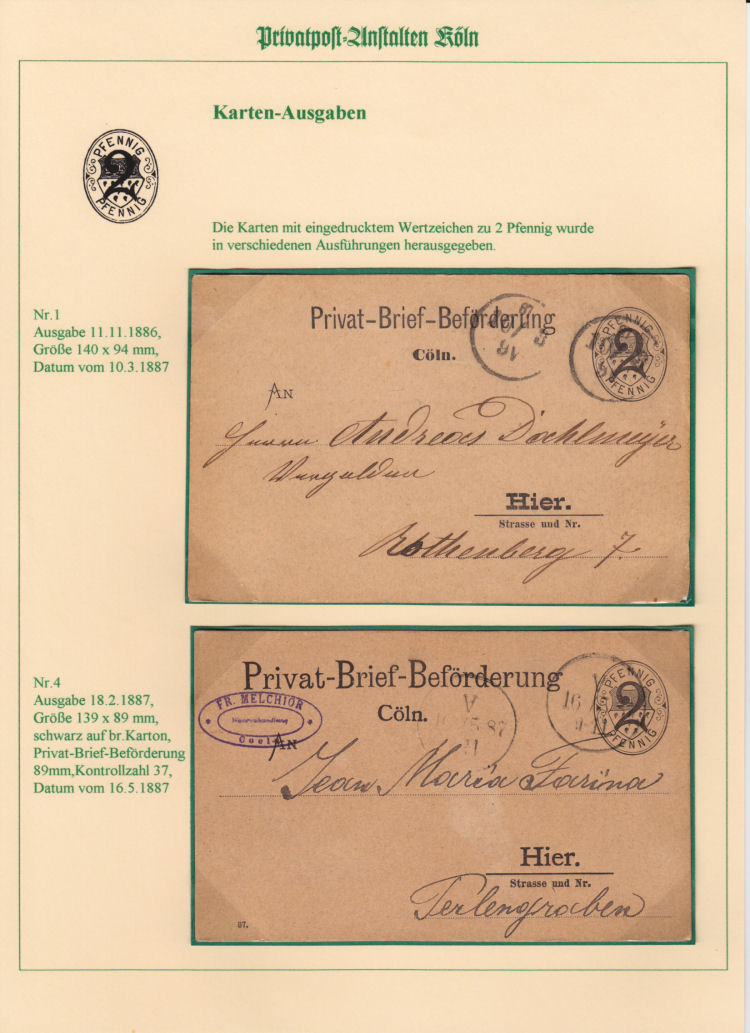 Privatpost-Anstalten Köln
Karten-Ausgaben
PFENNIG
2
PFENNIG
Die Karten mit eingedrucktem Wertzeichen zu 2 Pfennig wurde
in verschiedenen Ausführungen herausgegeben.
Nr.1
Ausgabe 11.11.1886,
Größe 140 x 94 mm,
Datum vom 10.3.1887
Privat-Brief-Beförderung
Cöln.
PFENNIG
2
PFENNIG
AN
Herrn Andreas Dachlmeyer
Vergolder
Hier.
Strasse und Nr.
Rothenberg 7.
Nr.4
Ausgabe 18.2.1887,
Größe 139 x 89 mm,
schwarz auf br.Karton,
Privat-Brief-Beförderung
89mm,Kontrollzahl 37,
Datum vom 16.5.1887
Privat-Brief-Beförderung
Cöln.
FR. MELCHIOR
Coeln
V
16 5 87
11
V
16
9-11
PFENNIG
2
PFENNIG
AN
Jean Maria Farina
Hier.
Strasse und Nr.
Perlengraben
37.